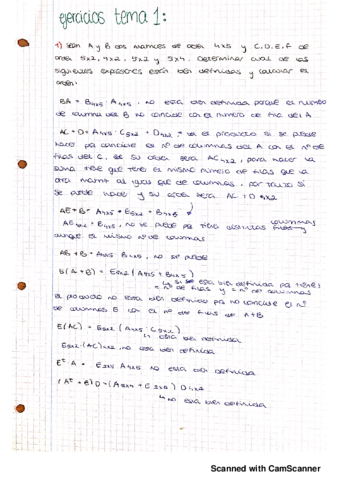 ejercicios tema 1:
1) Sean A y B dos matrices de orden 4x5 y C, D, E, F de
orden 5x2, 4x2, 5x2 y 5x4. Determinar cual de las
siguientes expresiones están bien definidas y calcular el
orden:
BA = B4x5 · A4x5, no está bien definida porque el numero
de columna del B no coincide con el numero de fila del A
AC + D = A4x5 · C5x2 + D4x2 = es el producto si se puede
hacer pq coincide el nº de columnas del A con el nº de
filas del C, su orden será AC4x2, para hacer la
suma tiene que tener el mismo numero de filas que la
otra matriz al igual que de columnas, por tanto si
se puede hacer y su orden será AC + D 4x2
AE + B = A4x5 + E5x2 + B4x5
AE4x2 + B4x5, no se puede pq tiene distintas columnas
aunque el mismo nº de
AB + B = A4x5 B4x5, no se puede
E (A + B) = E5x2 (A4x5 + B4x5)
↳ si está bien definida pq tiene =
nº de filas y = nº de columnas
El producto no está bien definido pq no coincide el nº
de columnas E con el nº de filas de A+B
E(AC) = E5x2 (A4x5 C5x2)
↳ está bien definida
E5x2 · (AC)4x2, no está bien definida
Eᵗ · A = E2x5 A4x5 no está bien definida
(Aᵗ + E) D = (A5x4 + E5x2) D4x2
↳ no está bien definida
Scanned with CamScanner